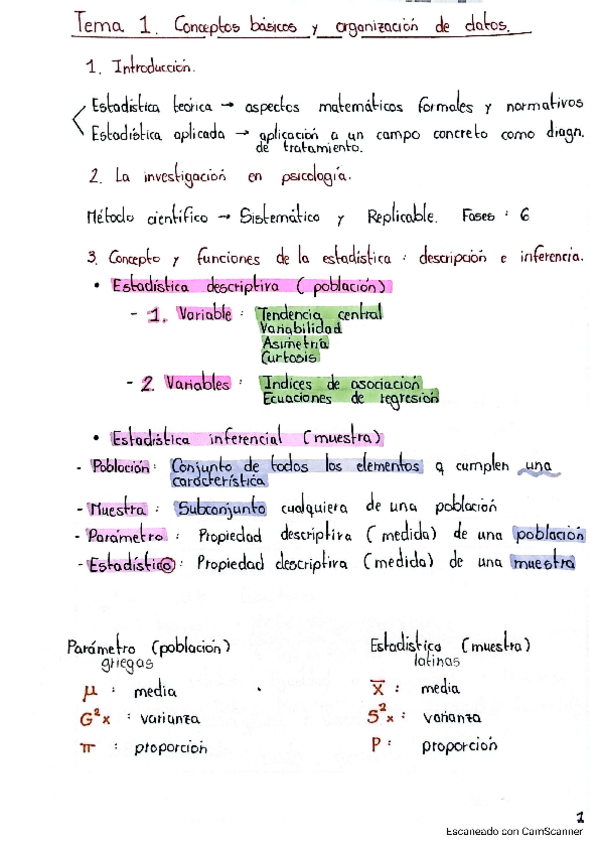 Tema 1. Conceptos básicos y organización de datos.
1. Introducción.
Estadística teórica → aspectos matemáticos formales y normativos
Estadística aplicada → aplicación a un campo concreto como diagn.
de tratamiento.
2. La investigación en psicología.
Método científico → Sistemático y Replicable. Fases : 6
3. Concepto y funciones de la estadística : descripción e inferencia.
• Estadística descriptiva ( población )
- 1. Variable : Tendencia central
Variabilidad
Asimetría
Curtosis
- 2. Variables : Indices de asociación
Ecuaciones de regresión
• Estadística inferencial ( muestra )
- Población : Conjunto de todos los elementos q cumplen una
característica
- Muestra : Subconjunto cualquiera de una población
- Parámetro : Propiedad descriptiva ( medida ) de una población
- Estadístico : Propiedad descriptiva ( medida ) de una muestra
Parámetro (población) Estadístico (muestra)
griegas latinas
μ : media X̅ : media
G²x : varianza S²x : varianza
π : proporción P : proporción
1
Escaneado con CamScanner